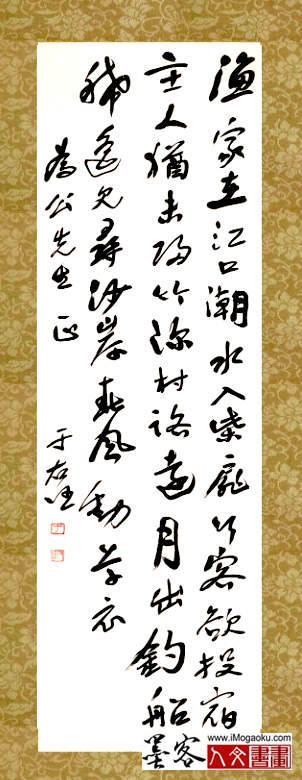 漁家在江口潮水入柴扉行客欲投宿
主人猶未歸竹深村路遠月出釣船
稀遙見尋沙岸春風動草衣
為公先生正
于右任
墨客
www.iMogaoku.com
人文書畫